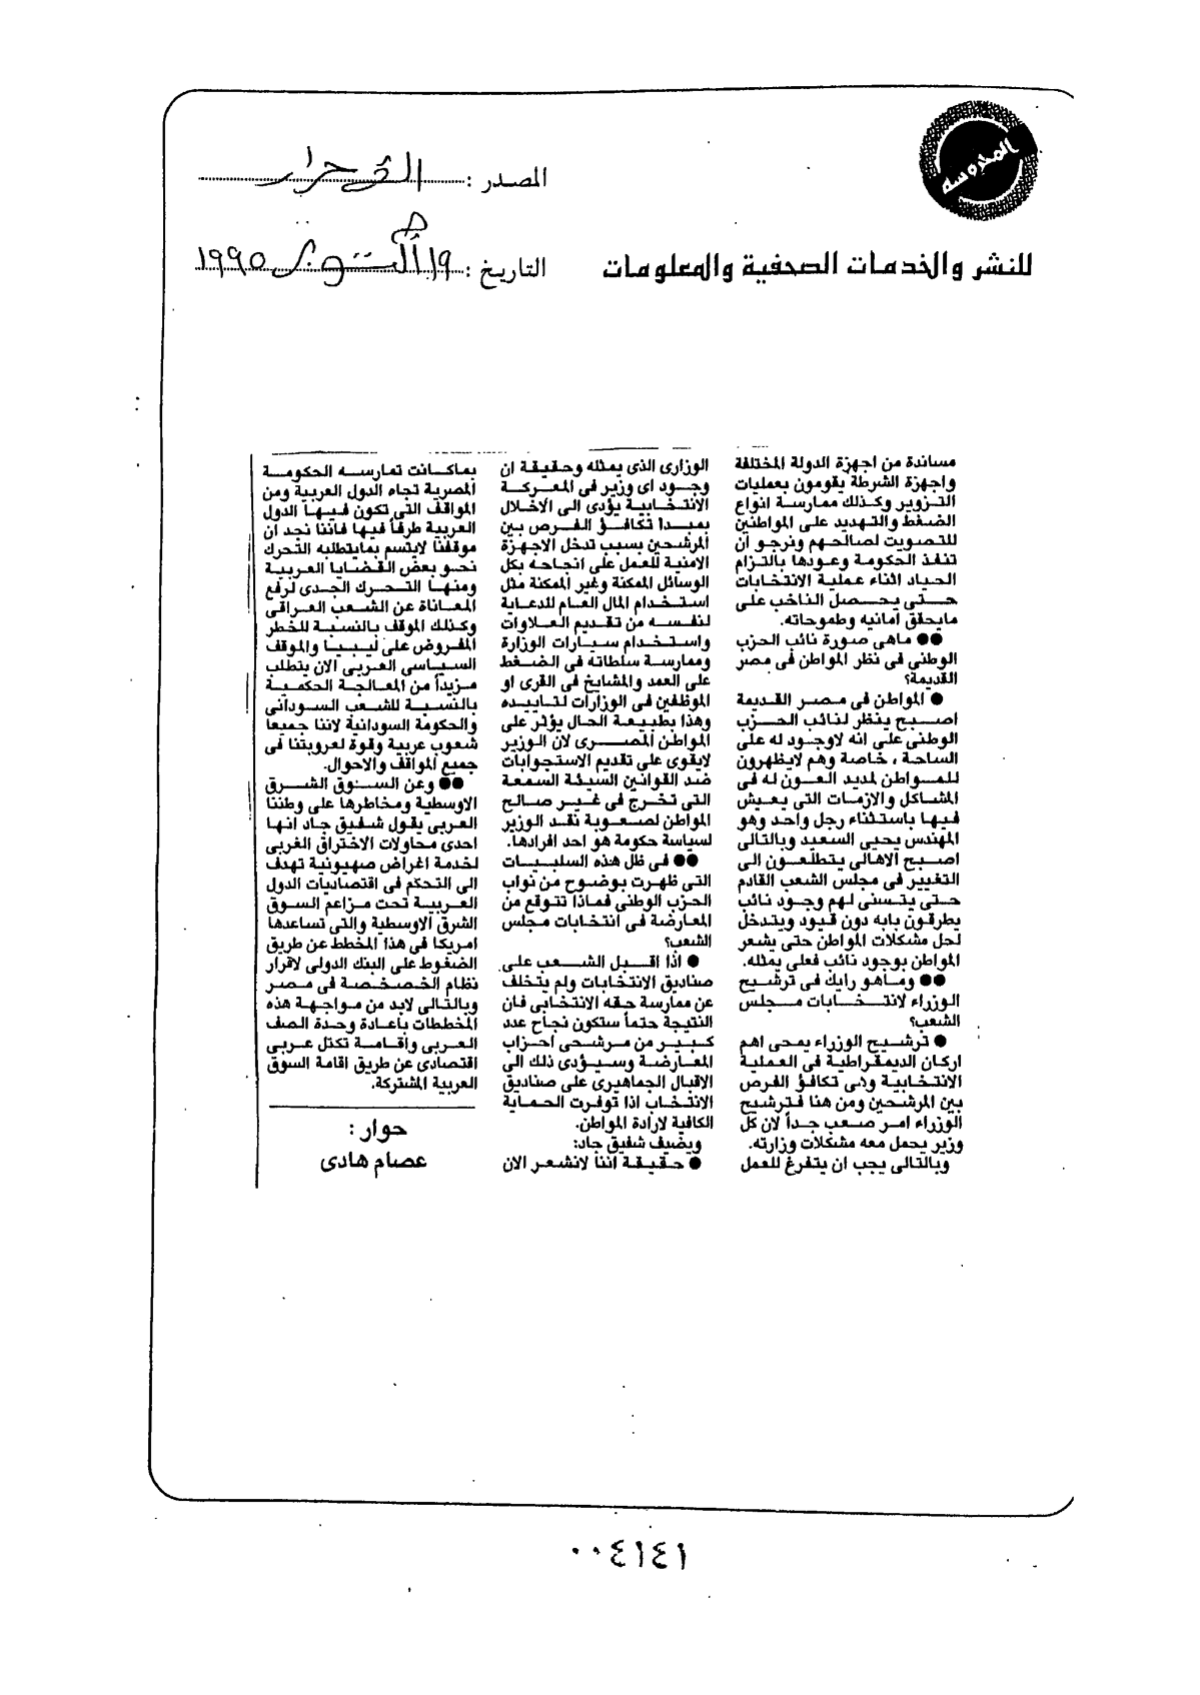 المحروسة
للنشر والخدمات الصحفية والمعلومات
المصدر :
التاريخ : ١٩ أكتوبر ١٩٩٥
مساندة من اجهزة الدولة المختلفة
واجهزة الشرطة يقومون بعمليات
التزوير وكذلك ممارسة انواع
الضغط والتهديد على المواطنين
للتصويت لصالحهم ونرجو ان
تنفذ الحكومة وعودها بالتزام
الحياد اثناء عملية الانتخابات
حتى يحصل الناخب على
مايحقق امانيه وطموحاته.
●● ماهى صورة نائب الحزب
الوطنى فى نظر المواطن فى مصر
القديمة؟
● المواطن فى مصر القديمة
اصبح ينظر لنائب الحزب
الوطنى على انه لاوجود له على
الساحة ، خاصة وهم لايظهرون
للمواطن لمديد العون له فى
المشاكل والازمات التى يعيش
فيها باستثناء رجل واحد وهو
المهندس يحيى السعيد وبالتالى
اصبح الاهالى يتطلعون الى
التغيير فى مجلس الشعب القادم
حتى يتسنى لهم وجود نائب
يطرقون بابه دون قيود ويتدخل
لحل مشكلات المواطن حتى يشعر
المواطن بوجود نائب فعلى يمثله.
●● وماهو رايك فى ترشيح
الوزراء لانتخابات مجلس
الشعب؟
● ترشيح الوزراء يمحى اهم
اركان الديمقراطية فى العملية
الانتخابية وهى تكافؤ الفرص
بين المرشحين ومن هنا فترشيح
الوزراء امر صعب جداً لان كل
وزير يحمل معه مشكلات وزارته.
وبالتالى يجب ان يتفرغ للعمل
الوزارى الذى يمثله وحقيقة ان
وجود اى وزير فى المعركة
الانتخابية يؤدى الى الاخلال
بمبدا تكافؤ الفرص بين
المرشحين بسبب تدخل الاجهزة
الامنية للعمل على انجاحه بكل
الوسائل الممكنة وغير الممكنة مثل
استخدام المال العام للدعاية
لنفسه من تقديم العلاوات
واستخدام سيارات الوزارة
وممارسة سلطاته فى الضغط
على العمد والمشايخ فى القرى او
الموظفين فى الوزارات لتاييده
وهذا بطبيعة الحال يؤثر على
المواطن المصرى لان الوزير
لايقوى على تقديم الاستجوابات
ضد القوانين السيئة السمعة
التى تخرج فى غير صالح
المواطن لصعوبة نقد الوزير
لسياسة حكومة هو احد افرادها.
●● فى ظل هذه السلبيات
التى ظهرت بوضوح من نواب
الحزب الوطنى فماذا تتوقع من
المعارضة فى انتخابات مجلس
الشعب؟
● اذا اقبل الشعب على
صناديق الانتخابات ولم يتخلف
عن ممارسة حقه الانتخابى فان
النتيجة حتماً ستكون نجاح عدد
كبير من مرشحى احزاب
المعارضة وسيؤدى ذلك الى
الاقبال الجماهيرى على صناديق
الانتخاب اذا توفرت الحماية
الكافية لارادة المواطن.
ويضيف شفيق جاد:
● حقيقة اننا لانشعر الان
بماكانت تمارسه الحكومة
المصرية تجاه الدول العربية ومن
المواقف التى تكون فيها الدول
العربية طرفاً فيها فاننا نجد ان
موقفنا لايتسم بمايتطلبه التحرك
نحو بعض القضايا العربية
ومنها التحرك الجدى لرفع
المعاناة عن الشعب العراقى
وكذلك الموقف بالنسبة للخطر
المفروض على ليبيا والموقف
السياسى العربى الان يتطلب
مزيداً من المعالجة الحكمية
بالنسبة للشعب السودانى
والحكومة السودانية لاننا جميعا
شعوب عربية وقوة لعروبتنا فى
جميع المواقف والاحوال.
●● وعن السوق الشرق
الاوسطية ومخاطرها على وطننا
العربى يقول شفيق جاد انها
احدى محاولات الاختراق الغربى
لخدمة اغراض صهيونية تهدف
الى التحكم فى اقتصاديات الدول
العربية تحت مزاعم السوق
الشرق الاوسطية والتى تساعدها
امريكا فى هذا المخطط عن طريق
الضغوط على البنك الدولى لاقرار
نظام الخصخصة فى مصر
وبالتالى لابد من مواجهة هذه
المخططات باعادة وحدة الصف
العربى واقامة تكتل عربى
اقتصادى عن طريق اقامة السوق
العربية المشتركة.
حوار :
عصام هادى
٠٠٤١٤١